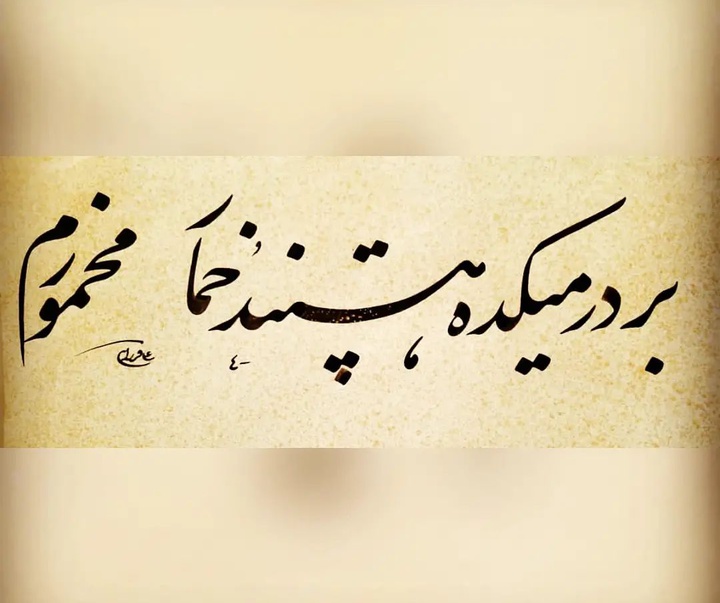 بر در میکده هستند مخمورم